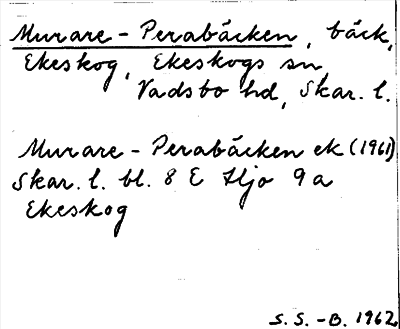 Murare-Perabäcken, bäck,
Ekeskog, Ekeskogs sn,
Vadsbo hd, Skar. l.
Murare-Perabäcken ek (1961)
Skar. l. bl. 8 E Hjo 9 a
Ekeskog
S. S.-B. 1962